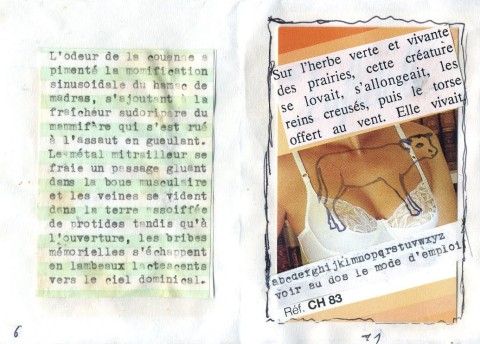 L'odeur de la couenne a
pimenté la momification
sinusoïdale du hamac de
madras, s'ajoutant la
fraîcheur sudoripare du
mammifère qui s'est rué
à l'assaut en gueulant.
Le métal mitrailleur se
fraie un passage gluant
dans la boue musculaire
et les veines se vident
dans la terre assoiffée
de protides tandis qu'à
l'ouverture, les bribes
mémorielles s'échappent
en lambeaux lactescents
vers le ciel dominical.
6
Sur l'herbe verte et vivante
des prairies, cette créature
se lovait, s'allongeait, les
reins creusés, puis le torse
offert au vent. Elle vivait
abcdefghijklmnopqrstuvwxyz
voir au dos le mode d'emploi
Réf. CH 83